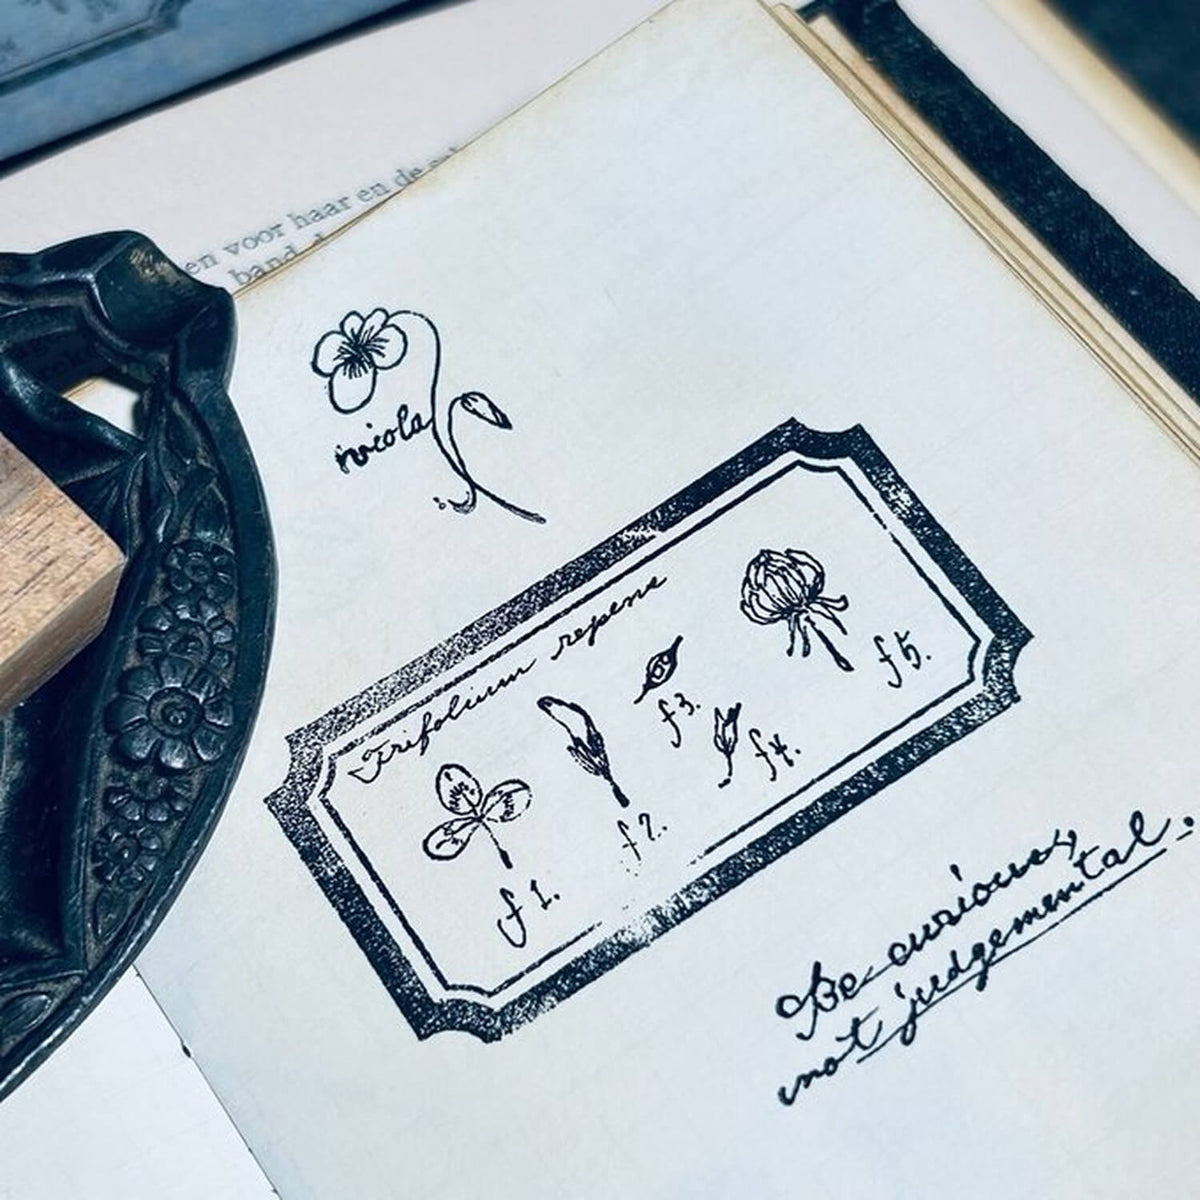 en voor haar en de
band
viola
Trifolium repens
f 1.
f 2.
f 3.
f 4.
f 5.
Be curious,
not judgemental.